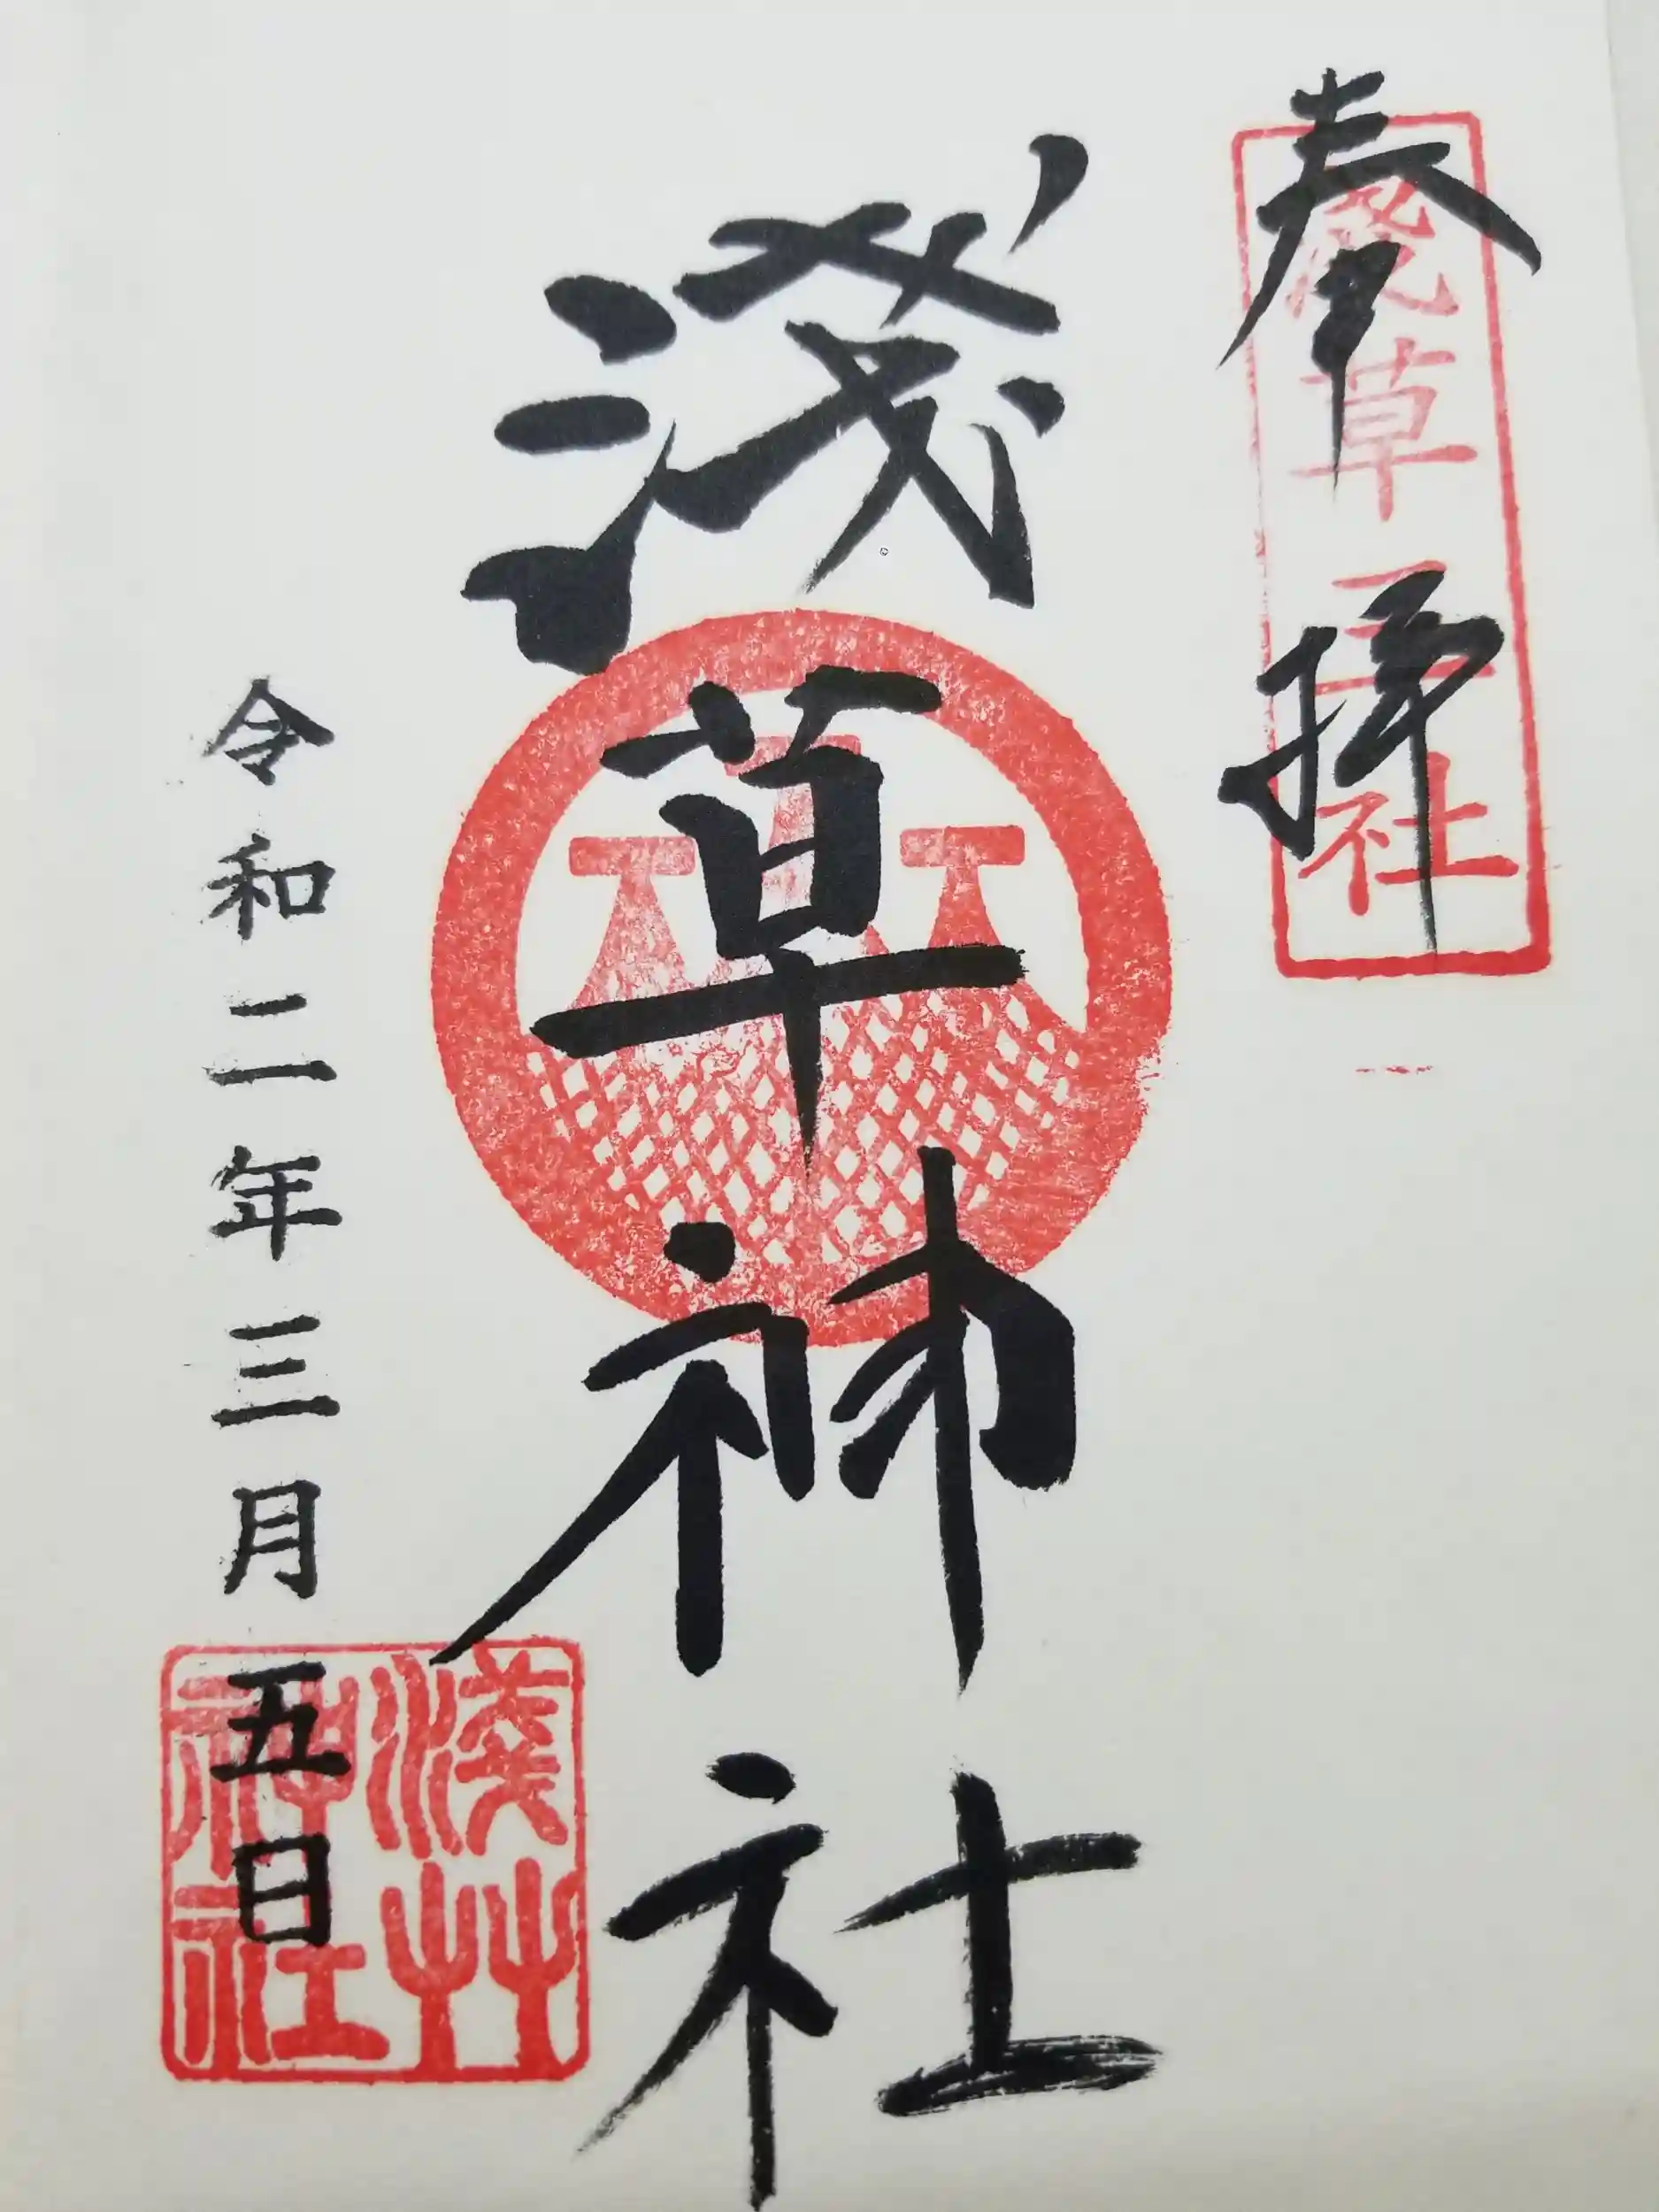 奉拝
浅草三社
淺草神社
令和二年三月五日
淺艸神社